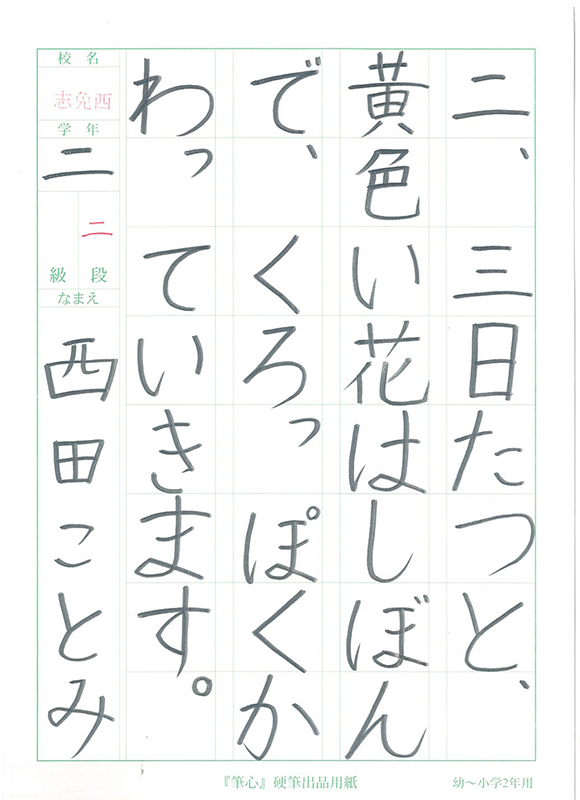 二、三日たつと、
黄色い花はしぼん
で、くろっぽくか
わっていきます。
校名
志免西
学年
二
二
級段
なまえ
西田ことみ
『筆心』硬筆出品用紙
幼～小学2年用